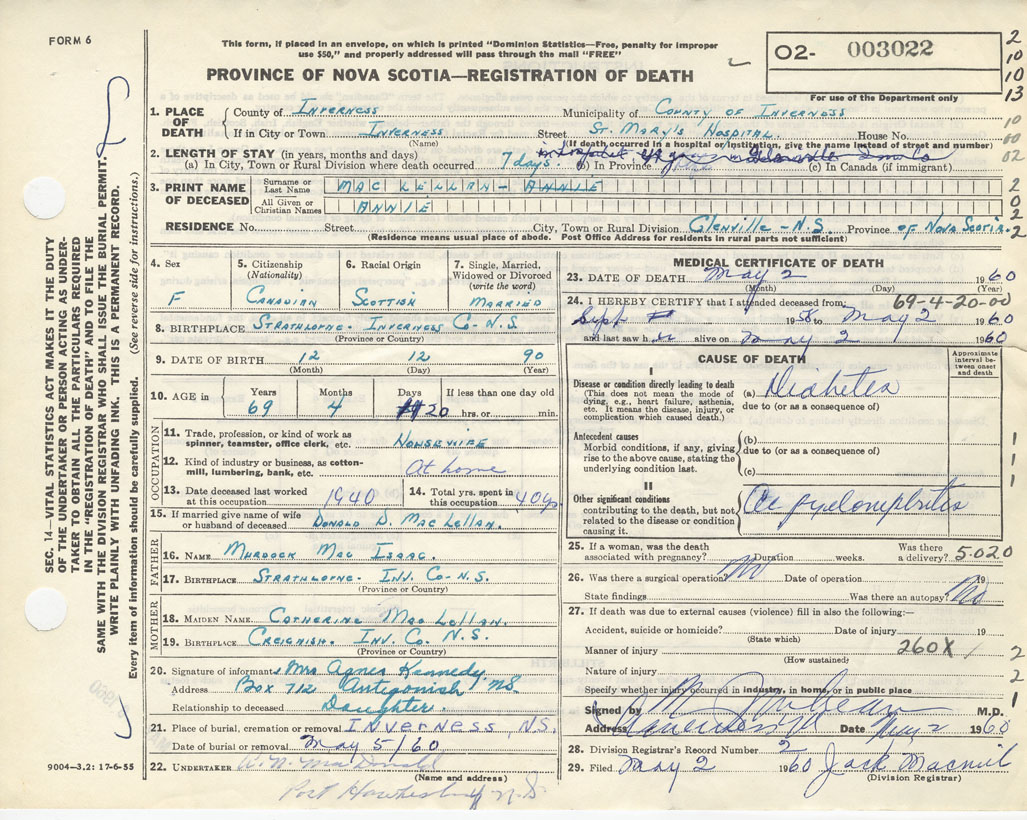 FORM 6
This form, if placed in an envelope, on which is printed "Dominion Statistics—Free, penalty for improper
use $50," and properly addressed will pass through the mail "FREE"
PROVINCE OF NOVA SCOTIA—REGISTRATION OF DEATH
02- 003022
For use of the Department only
2
10
10
13
10
00
02
2
0
2
2
SEC. 14—VITAL STATISTICS ACT MAKES IT THE DUTY
OF THE UNDERTAKER OR PERSON ACTING AS UNDER-
TAKER TO OBTAIN ALL THE PARTICULARS REQUIRED
IN THE "REGISTRATION OF DEATH" AND TO FILE THE
SAME WITH THE DIVISION REGISTRAR WHO SHALL ISSUE THE BURIAL PERMIT.
WRITE PLAINLY WITH UNFADING INK. THIS IS A PERMANENT RECORD.
Every item of information should be carefully supplied. (See reverse side for instructions.)
1. PLACE OF DEATH
County of Inverness Municipality of County of Inverness
If in City or Town Inverness Street St. Mary's Hospital. House No.
(Name) (If death occurred in a hospital or institution, give the name instead of street and number)
2. LENGTH OF STAY (in years, months and days)
(a) In City, Town or Rural Division where death occurred 7 days. (b) In Province (c) In Canada (if immigrant)
3. PRINT NAME OF DECEASED
Surname or Last Name MAC LELLAN - ANNIE
All Given or Christian Names ANNIE
RESIDENCE No. Street City, Town or Rural Division Glenville - N.S. Province of Nova Scotia.
(Residence means usual place of abode. Post Office Address for residents in rural parts not sufficient)
4. Sex F
5. Citizenship (Nationality) Canadian
6. Racial Origin Scottish
7. Single, Married, Widowed or Divorced (write the word) Married
8. BIRTHPLACE Strathlorne- Inverness Co-N.S.
(Province or Country)
9. DATE OF BIRTH 12 12 90
(Month) (Day) (Year)
10. AGE in Years 69 Months 4 Days 20 If less than one day old hrs. or min.
OCCUPATION
11. Trade, profession, or kind of work as spinner, teamster, office clerk, etc. Housewife
12. Kind of industry or business, as cotton-mill, lumbering, bank, etc. At home
13. Date deceased last worked at this occupation 1940
14. Total yrs. spent in this occupation 40 yr
15. If married give name of wife or husband of deceased Donald D. MacLellan.
FATHER
16. NAME Murdock Mac Isaac.
17. BIRTHPLACE Strathlorne- Inv. Co-N.S.
(Province or Country)
MOTHER
18. MAIDEN NAME Catherine MacLellan.
19. BIRTHPLACE Creignish. Inv. Co. N.S.
(Province or Country)
20. Signature of informant Mrs Agnes Kennedy.
Address Box 712 Antigonish NS.
Relationship to deceased Daughter.
21. Place of burial, cremation or removal INVERNESS, NS.
Date of burial or removal May 5/60
22. UNDERTAKER MacDonald
(Name and address)
Port Hawkesbury N.S.
9004—3.2: 17-6-55
MEDICAL CERTIFICATE OF DEATH
23. DATE OF DEATH May 2 1960
(Month) (Day) (Years)
24. I HEREBY CERTIFY that I attended deceased from 69-4-20-00
Sept 1958 to May 2 1960
and last saw h alive on May 2 1960
CAUSE OF DEATH
Approximate interval between onset and death
I
Disease or condition directly leading to death
(This does not mean the mode of dying, e.g., heart failure, asthenia, etc. It means the disease, injury, or complication which caused death.)
(a) Diabetes
due to (or as a consequence of)
Antecedent causes
Morbid conditions, if any, giving rise to the above cause, stating the underlying condition last.
(b)
due to (or as a consequence of)
(c)
II
Other significant conditions
contributing to the death, but not related to the disease or condition causing it.
Ac pyelonephritis
1
1
1
25. If a woman, was the death associated with pregnancy? Duration weeks. Was there a delivery? 5.020
26. Was there a surgical operation? No Date of operation 19
State findings Was there an autopsy? No
27. If death was due to external causes (violence) fill in also the following:—
Accident, suicide or homicide? Date of injury 19
(State which)
Manner of injury 260X 1
(How sustained)
Nature of injury
Specify whether injury occurred in industry, in home, or in public place
2
2
1
Signed by M.D.
Address Inverness Date May 2 1960
28. Division Registrar's Record Number 2
29. Filed May 2 1960 Jack Macneil
(Division Registrar)